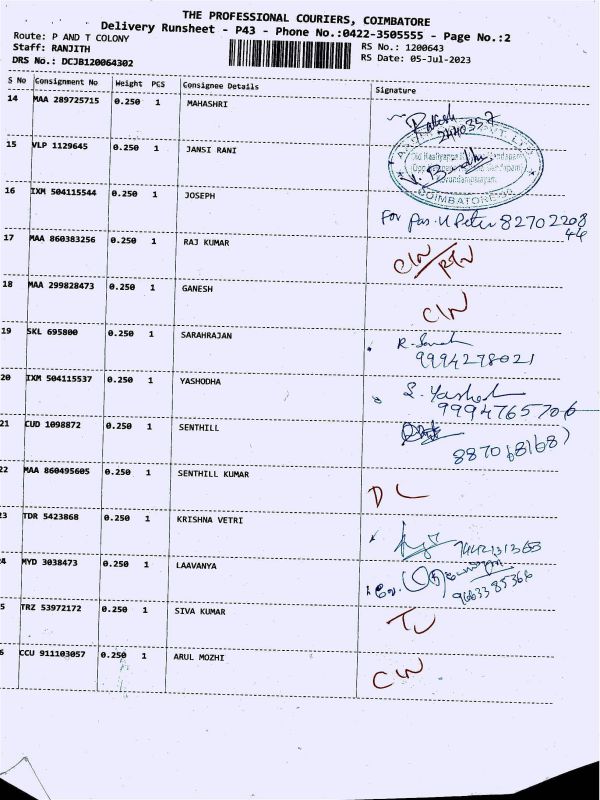 THE PROFESSIONAL COURIERS, COIMBATORE
Delivery Runsheet - P43 - Phone No.:0422-3505555 - Page No.:2
Route: P AND T COLONY
Staff: RANJITH
DRS No.: DCJB120064302
RS No.: 1200643
RS Date: 05-Jul-2023
S No Consignment No Weight PCS Consignee Details Signature
14 MAA 289725715 0.250 1 MAHASHRI
15 VLP 1129645 0.250 1 JANSI RANI
COIMBATORE
16 IXM 504115544 0.250 1 JOSEPH
For Pas. 82702208
44
17 MAA 860383256 0.250 1 RAJ KUMAR CW/
18 MAA 299828473 0.250 1 GANESH CW
19 SKL 695800 0.250 1 SARAHRAJAN
9994278021
20 IXM 504115537 0.250 1 YASHODHA
9994765706
21 CUD 1098872 0.250 1 SENTHILL
22 MAA 860495605 0.250 1 SENTHILL KUMAR D L
3 TDR 5423868 0.250 1 KRISHNA VETRI
4 MYD 3038473 0.250 1 LAAVANYA
9663385366
5 TRZ 53972172 0.250 1 SIVA KUMAR
6 CCU 911103057 0.250 1 ARUL MOZHI CW